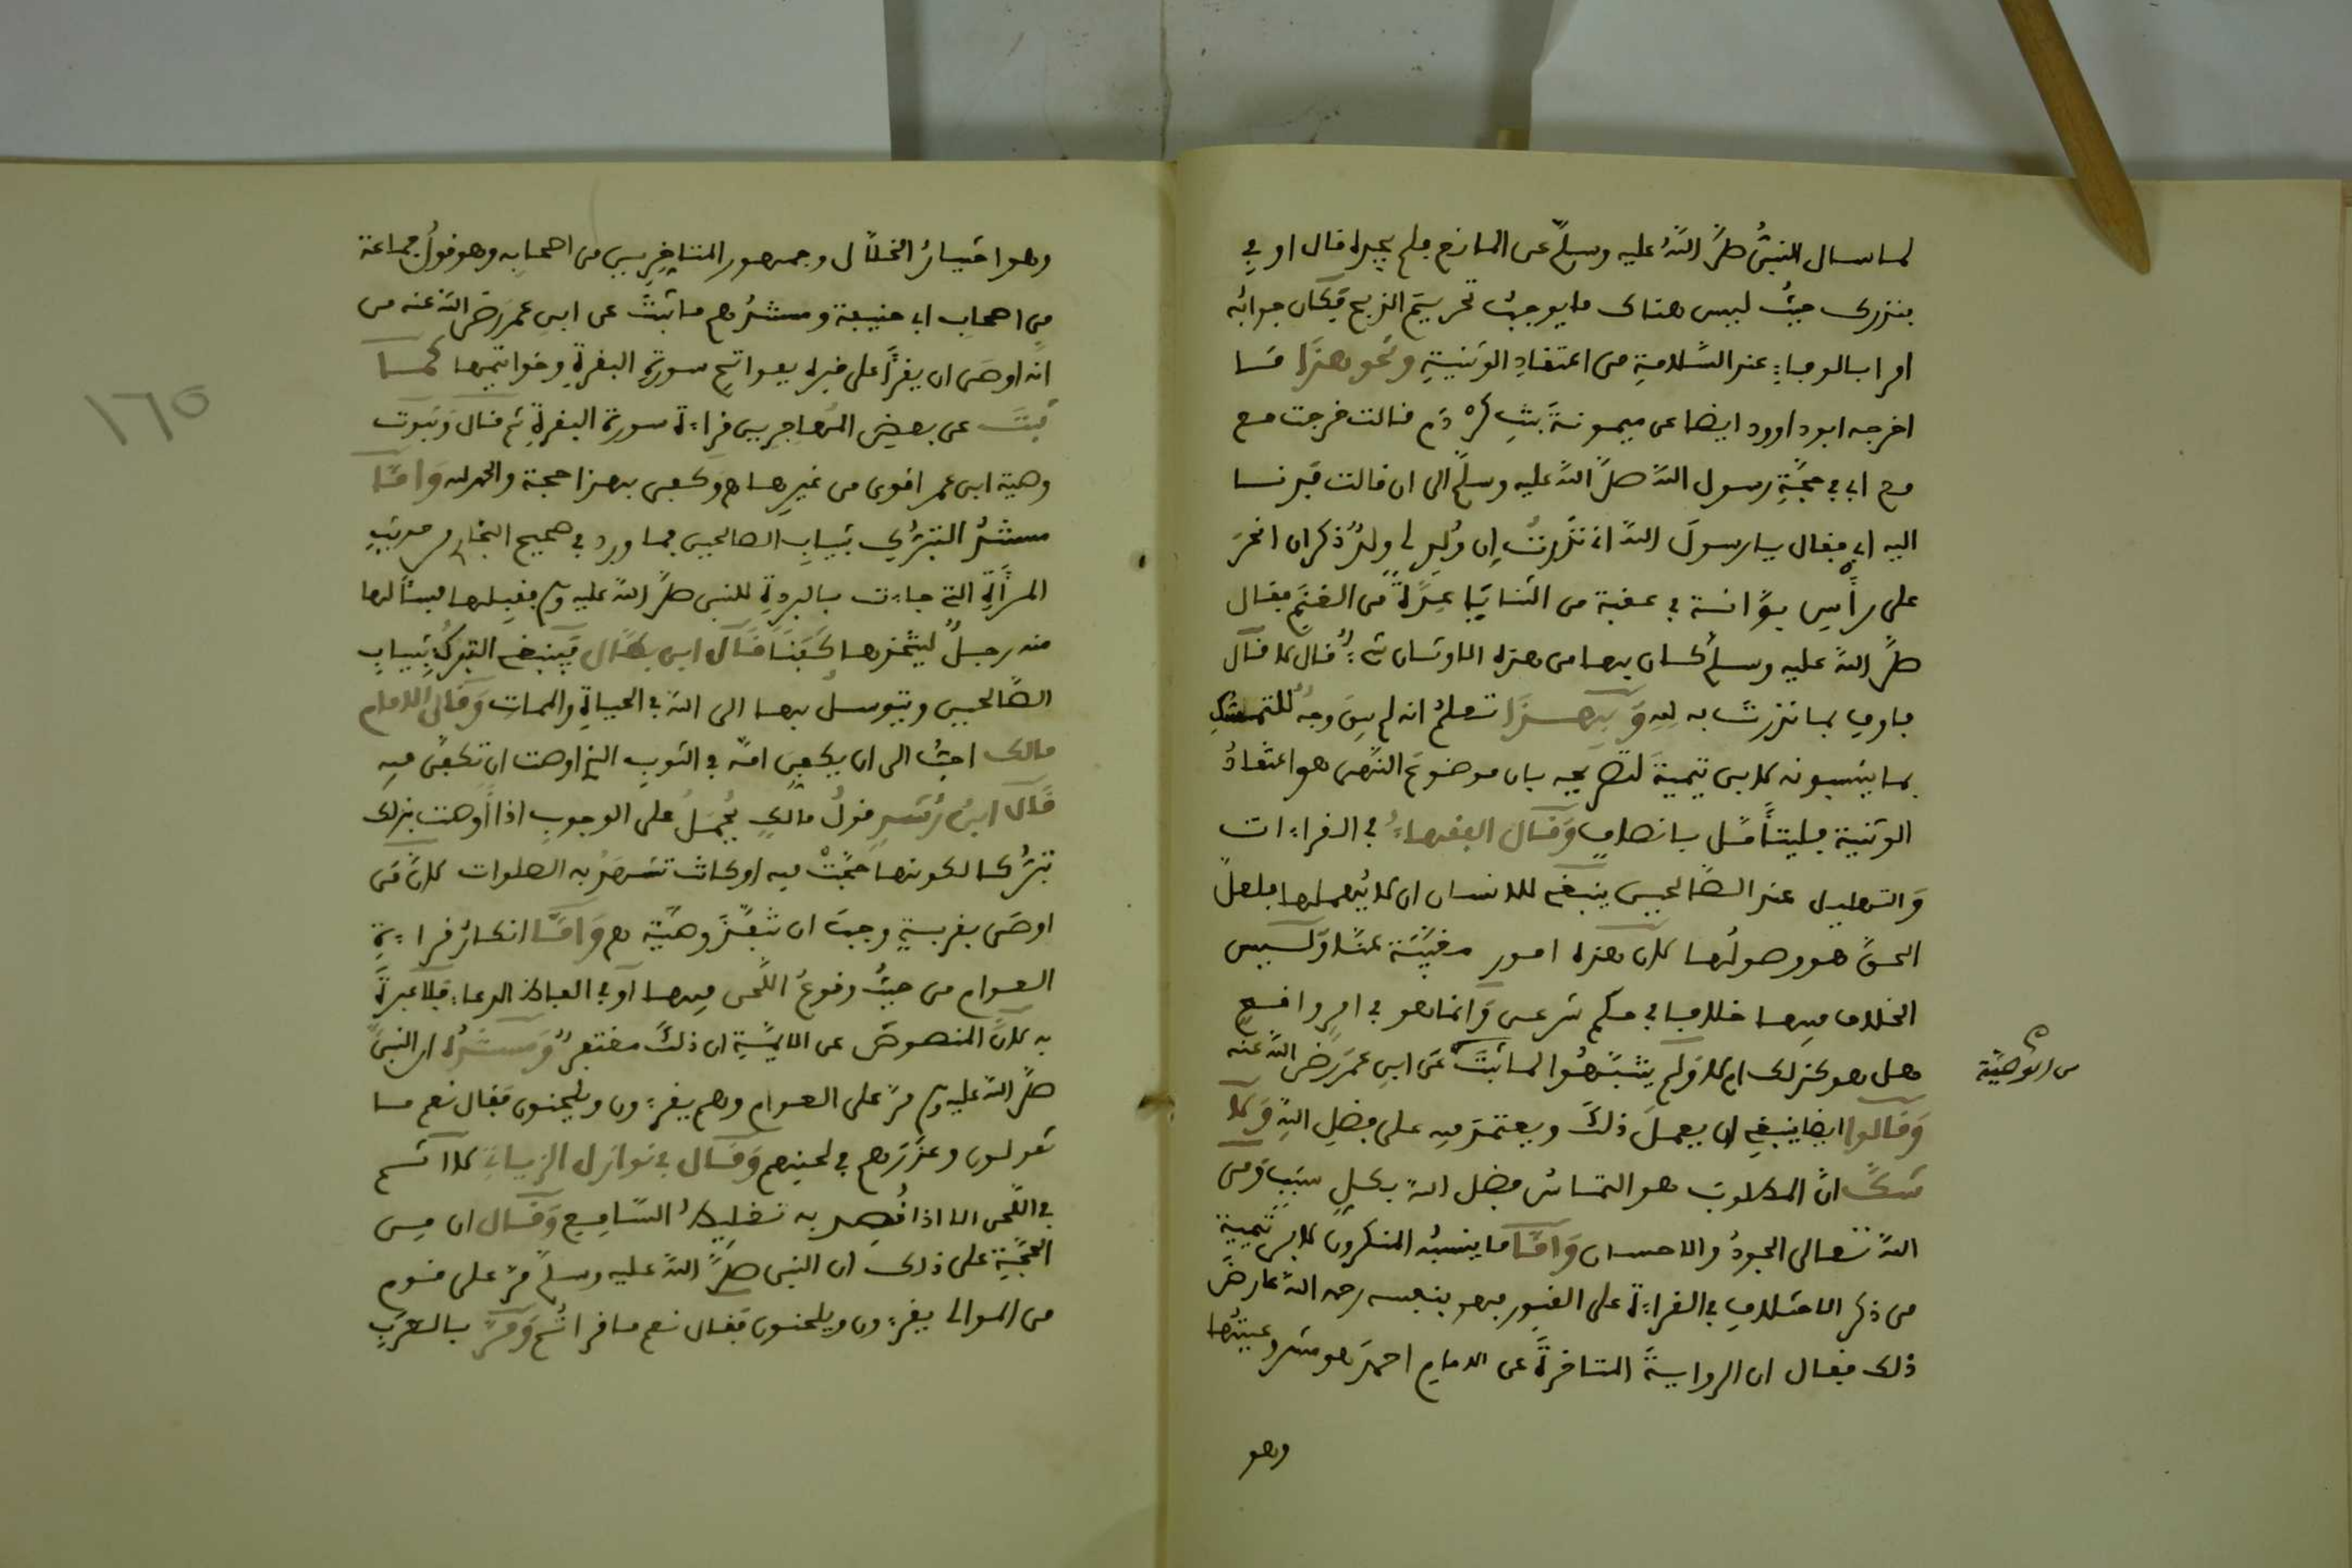 لما سال النبىُّ صلَّ اللهُ عليه وسلَّم عن المانع فلم يجده قال اوفِ
بنذرك حيثُ ليس هناك ما يوجبُ تحريمَ الذبح فكان جوابُه
امرا بالوفاءِ عند السَّلامةِ من اعتقادِ الوثنيةِ ونحو هذا مَا
اخرجه ابو داوود ايضا عن ميمونةَ بنتِ كَرْدَم قالت خرجت مع
مع ابى فى حجَّةِ رسول اللهَ صلَّ اللهُ عليه وسلَّم الى ان قالت فدنا
اليه ابى فقال يا رسولَ اللهَ انى نَذَرتُ إِن وُلِد لى ولدٌ ذكر ان انحرَ
على رأسِ بوَّانة فى عقبة من الثنايَا عِدَّةً من الغنَمِ فقال
صلَّ اللهُ عليه وسلم أكان بها من هذه الاوثان شىءٌ قال لا قال
فاوفِ بما نذرتَ به للهِ وَبِهَذَا تعلمُ انه لم يبقَ وجهٌ للتمسّكِ
بما ينسبونه لابن تيميةَ لتصريحِه بان موضوعَ النَّهى هو اعتقادُ
الوثنية فليتأمَّل بانصاف وَقَال الفقهاءُ فى القراءات
وَالتهليل عند الصَّالحين ينبغى للانسان ان لا يُهملها فلعلَّ
الحقَّ هو وصولُها لانَّ هذه امور مغيَّبة عنَّا وَليس
الخلاف فيها خلافا فى حكم شرعى وَانما هو فى امرٍ واقعٍ
هل هو كذلك ام لا وَلم يتنبَّهُوا لما ثبتَ عَن ابن عمرَ رضَ اللهُ عنه
من الوصيَّة
وَقَالوا ايضا ينبغى ان يعملَ ذلكَ ويعتمدَ فيه على فضلِ اللهِ وَلا
شكَّ انَّ المطلوبَ هو التماسُ فضل اللهَ بكلِ سَبَبٍ وَمن
اللهَ تعالى الجودُ والاحسان وَامَّا ما ينسبُه المنكرون لابن تيميةَ
من ذكر الاختلافِ فى القراءة على القبور فهو بنفسه رحمه اللهُ عارضَ
ذلك فقال ان الروايةَ المتاخرةَ عن الامام احمدَ هو مشروعيتُها
وهو
وهو اختيارُ الخلَّال وجمهور المتاخِرين من اصحابِه وهو قولُ جماعة
مِن اصحابِ ابى حنيفة ومستندُهم ما ثبتَ عن ابن عمرَ رضَ اللهُ عنه من
انه اوصَى ان يقرَأ على قبره بفواتح سورةِ البقرةِ وخواتيمها كما
ثبتَ عن بعضِ المُهاجرين قراءة سورة البقرةِ ثم قال وَثبوت
وصية ابن عمر اقوى من غيرها هـ وَكفى بهذا حجة والحمد لله وَامَّا
مستندُ التبرُّكِ بثيابِ الصالحين فما ورد فى صحيح البخارى من حديثِ
المرأةِ التى جاءت بالبردةِ للنبى صلَّ اللهُ عليه وسلم فقبِلها فسألها
منه رجلٌ ليتَّخذها كَفَنًا قَال ابن بطَّال فَينبغى التبركُ بثيابِ
الصَّالحين ويتوسلُ بها الى اللهَ فى الحياةِ والمماتِ وَقَال الامام
مالك احبُّ الى ان يكفنَ امرَّ فى الثوبِ الذى اوصت ان تكفنَ فيه
قَال ابنُ رُشدٍ قولُ مالكٍ يُحمَلُ على الوجوبِ اذا أوصت بذلك
تبرُّكا لكونها حَجَّتْ فيه او كانت تشهَدُ به الصلوات لانَّ مَن
اوصَى بقربةٍ وجبَ ان تنفَّذَ وصيَّتُه هـ وَامَّا انكارُ قراءةِ
العوام من حيثُ وقوعُ اللَّحن فيها اَو فى الفاظ الدعاء فلا عبرةَ
به لانَّ المنصوصَ عن الايمَّةِ ان ذلكَ مغتفرٌ وَمستندُه ان النبىَّ
صلَّ اللهُ عليه وسلم مرَّ على العوام وهم يقرءون ويلحنون فقال نعم ما
تقولون وعذَرَهم فى لحنهم وَقَال فى نوازل الزياتى لا اثم
فى اللَّحن الا اذا قُصِد به تغليطُ السَّامِع وَقال ان من
الحجَّةِ على ذلك ان النبى صلَّ اللهُ عليه وسلَّم مرَّ على قوم
من الموالى يقرءون ويلحنون فقال نعم ما قراتُم وَمرَّ بالعرَبِ
١٦٥